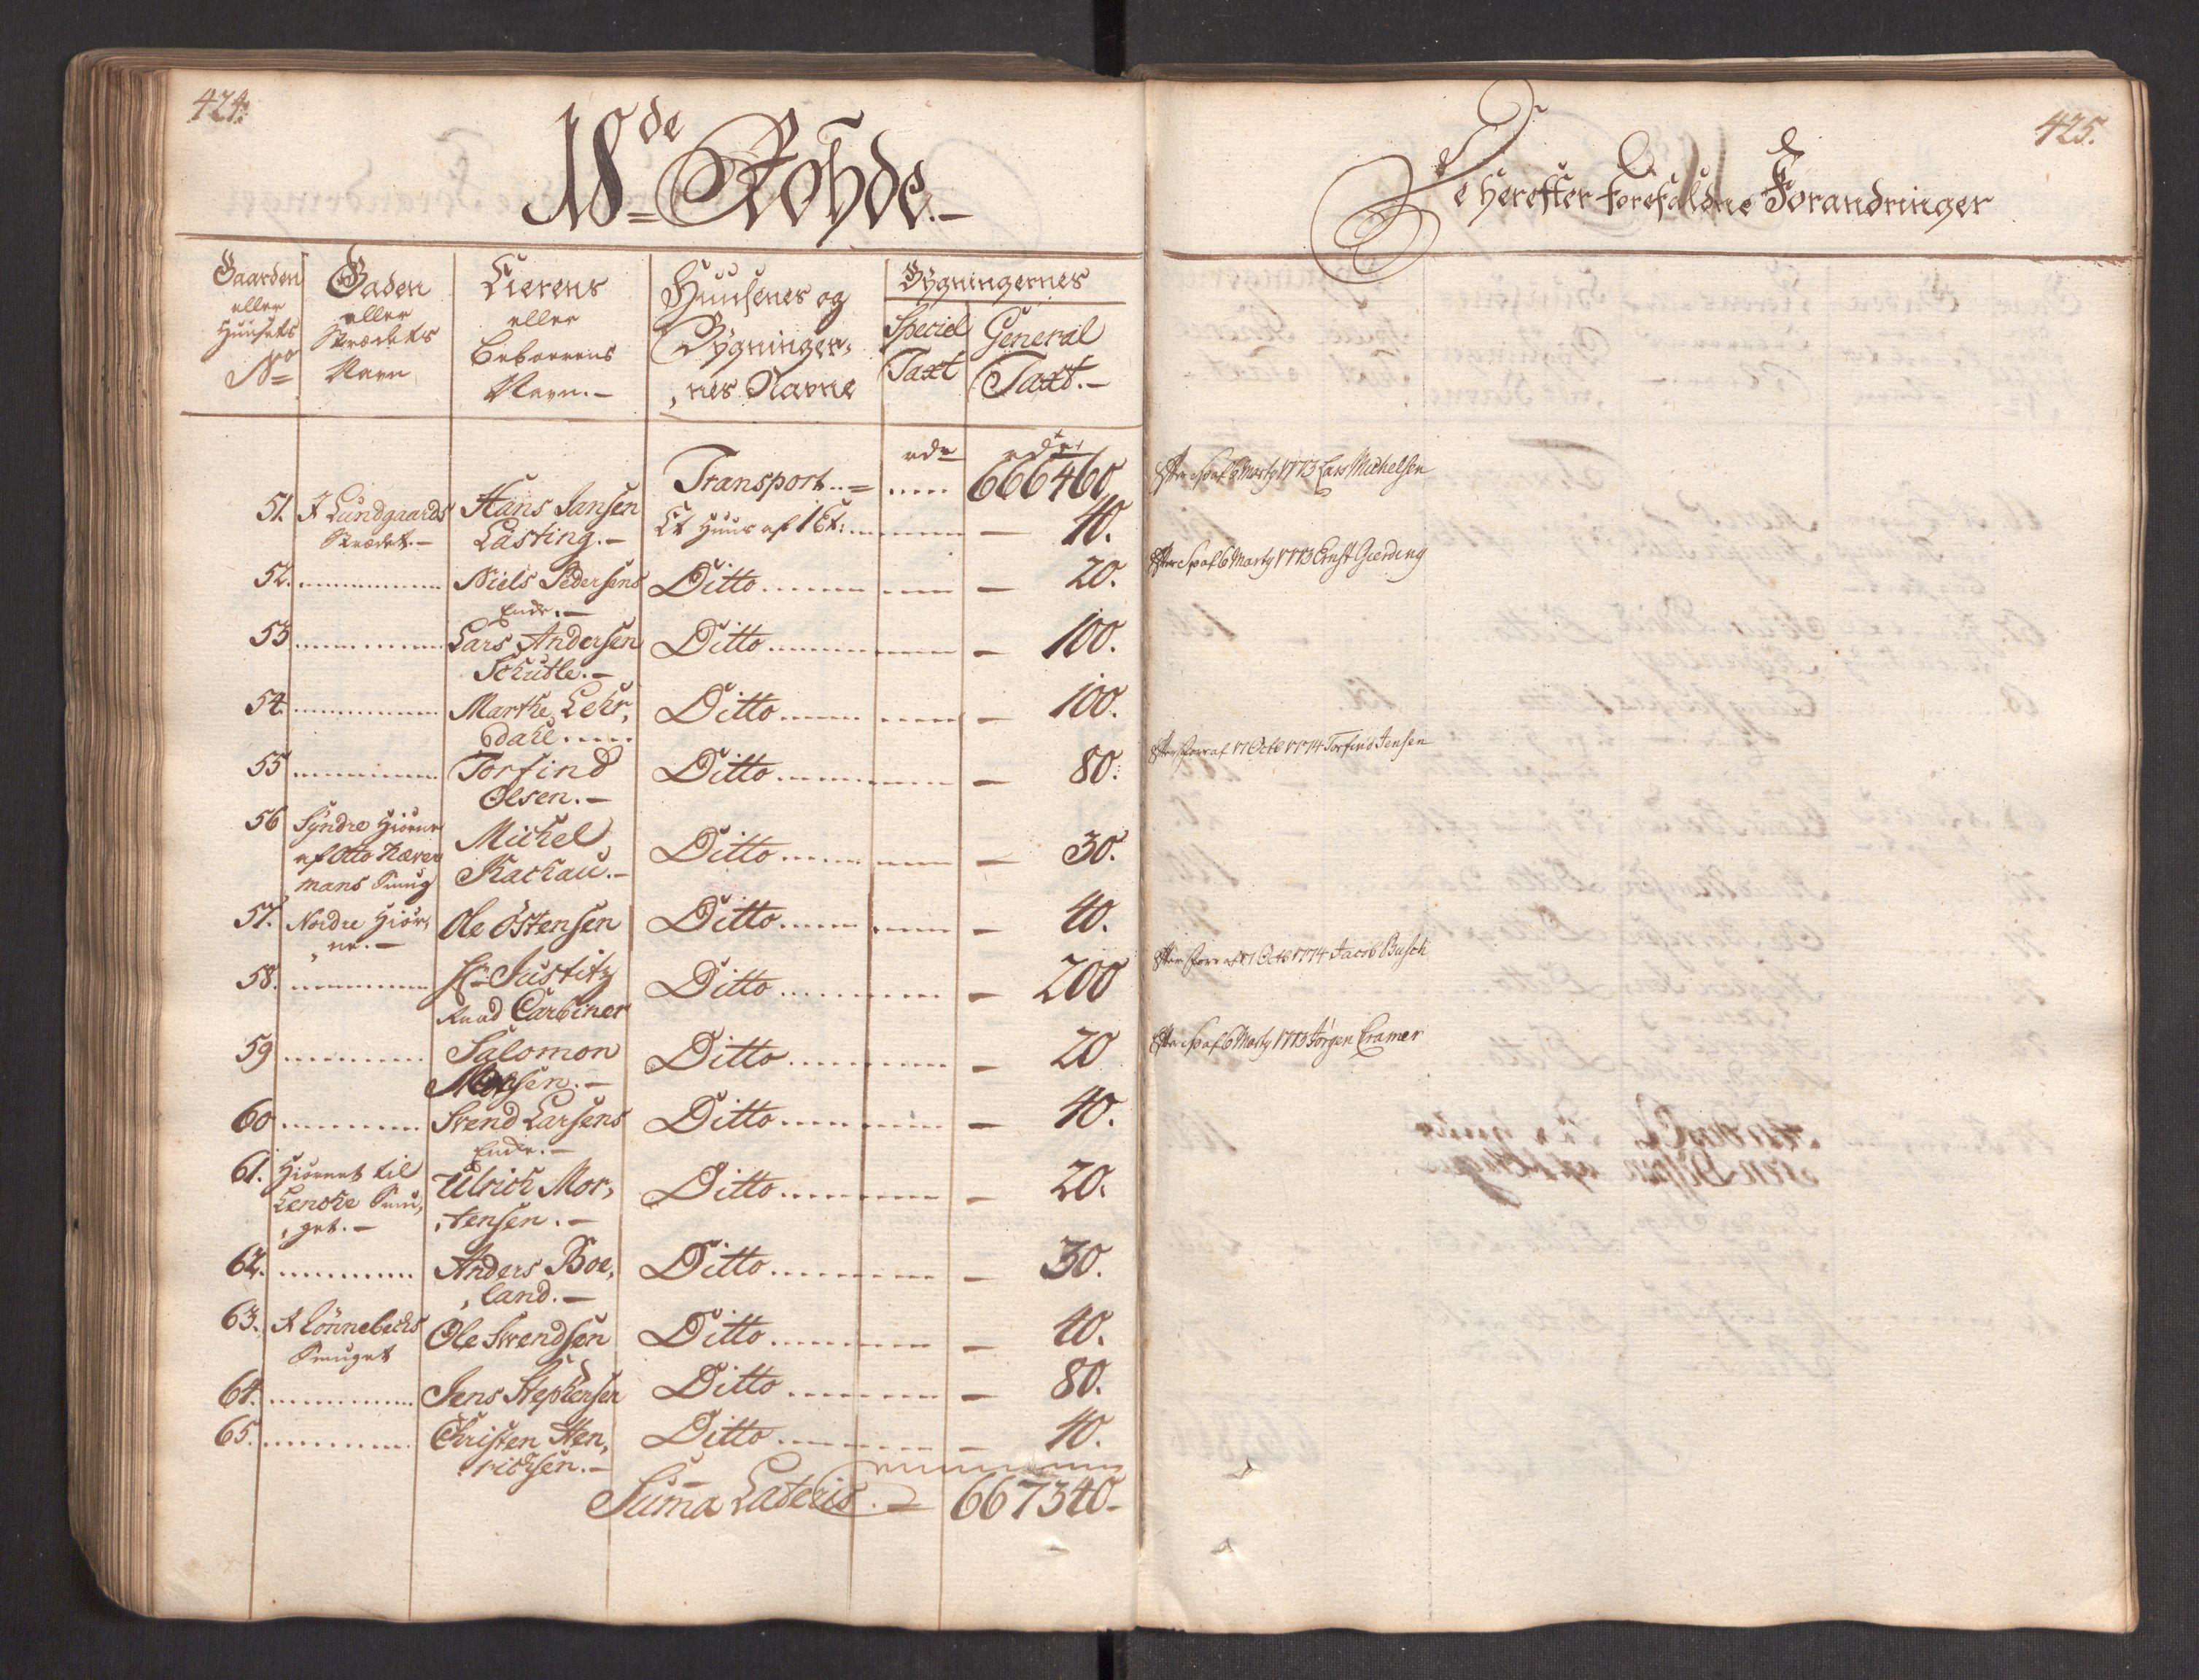 424.
18de Rohde.
Gaarden eller Huusets No
Gaden eller Strædets Navn
Eierens eller Beboerens Navn.
Huusenes og Bygninger, nes Navne
Bygningernes
Special Taxt
General Taxt.
rdr rdr
Transport 666460
51. I Lundgaards Hans Jansen Et Huus af 1 Et: 40.
Strædet. Lasting.
52. Niels Pedersens Ditto 20.
Enke.
53 Lars Andersen Ditto 100.
Schutle.
54. Marthe Lehr, Ditto 100.
dahl
55 Torfind Ditto 80.
Olsen.
56 Syndre Hiørne Michel Ditto 30.
af Otto Kæver Rachau.
mans Smug
57. Nordre Hiør, Ole Östensen Ditto 40.
ne.
58. Hr Justitz Ditto 200
Raad Carbiner
59 Salomon Ditto 20
Monsen.
60 Svend Larsens Ditto 40.
Enke.
61. Hiørnet til Ulrich Mor, Ditto 20.
Lenche Smu, tensen.
get.
62. Anders Boe, Ditto 30.
land.
63. I Lönnebechs Ole Svendsen Ditto 40.
Smuget
64. Jens Stephensen Ditto 80.
65. Christen Hen, Ditto 40.
richsen.
Suma Lateris 667340
425.
De herefter forefaldne Forandringer
6 Marty 1773 Lars Michelsen
6 Marty 1773 Ernst Gierding
17 Octb 1774 Torfind Jensen
17 Octb 1774 Jacob Busch
6 Marty 1773 Jörgen Cramer